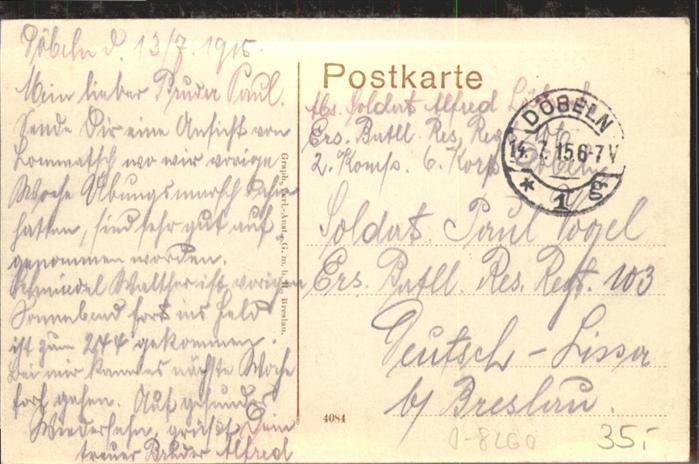 Döbeln d. 13/7. 1915.
Mein lieber Bruder Paul.
Sende Dir eine Ansicht von
Lommatsch wo wir vorige
Woche Übungsmarsch hin
hatten, sind sehr gut auf
genommen worden.
Walther ist vorigen
Sonnabend fort ins Feld
ist zum 244 gekommen.
Bei mir kann es nächste Woche
fort gehen. Auf gesundes
Wiedersehn, grüßt Dein
treuer Bruder Alfred
Graph. Verl.-Anst. G. m. b. H. Breslau.
Postkarte
Abs. Soldat Alfred
Ers. Batll. Res. Reg.
2. Komp. 6. Korp.
DÖBELN
14. 7. 15. 6-7 V
* 1 g
Soldat. Paul Vogel
Ers. Batll. Res. Regt. 103
Deutsch-Lissa
b/ Breslau.
4084
0-8260
35,-